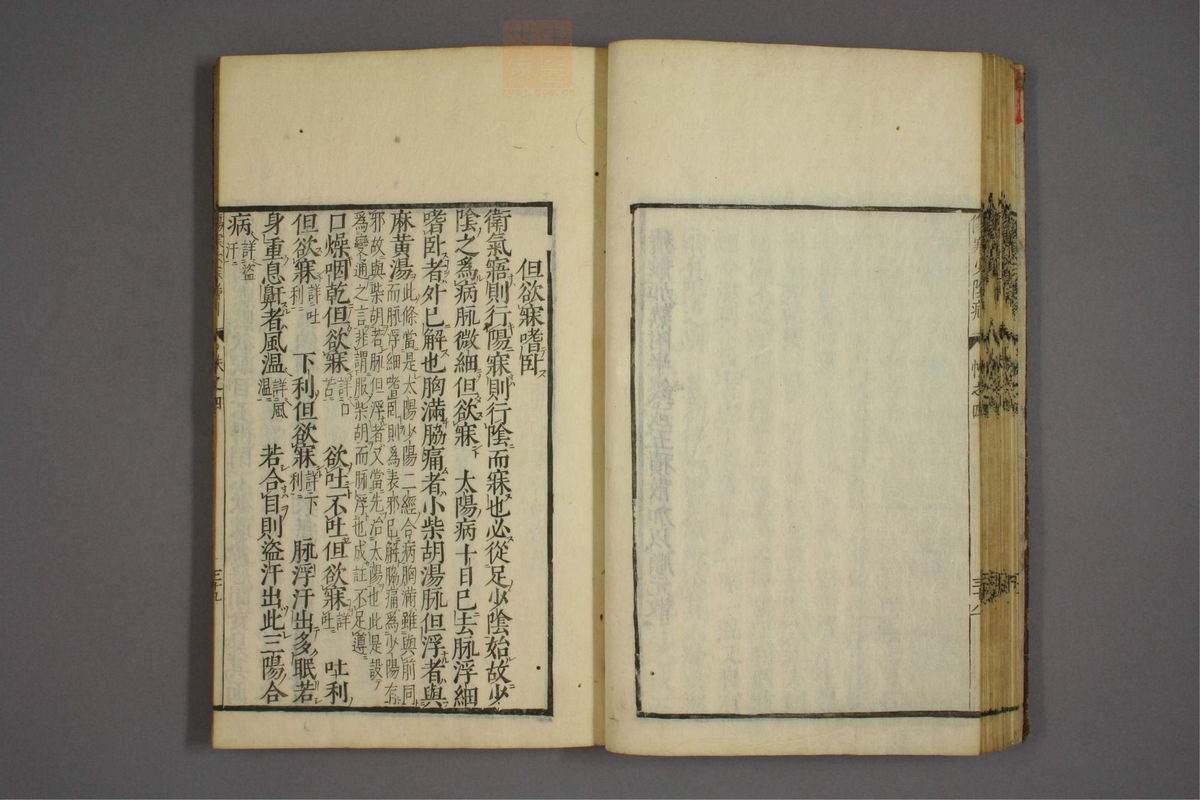 但欲寐嗜卧
衛氣寤則行陽寐則行陰而寐也必從足少陰始故少
陰之爲病脉微細但欲寐 太陽病十日已去脉浮細
嗜卧者外已解也胸滿脇痛者小柴胡湯脉但浮者與
麻黄湯 此條當是太陽少陽二經合病胸滿雖與前同
而脉浮細嗜卧則爲表邪已解脇痛爲少陽有
邪故與柴胡若脉但浮者又當先治太陽也此是設
爲變通之言非謂服柴胡而脉浮也成註不足遵
口燥咽乾但欲寐 詳口苦 欲吐不吐但欲寐 詳吐 吐利
但欲寐 詳吐利 下利但欲寐 詳下利 脉浮汗出多眠若
身重息鼾者風温 詳風温 若合目則盗汗出此三陽合
病 詳盗汗
帙之四
三十九
帙之四